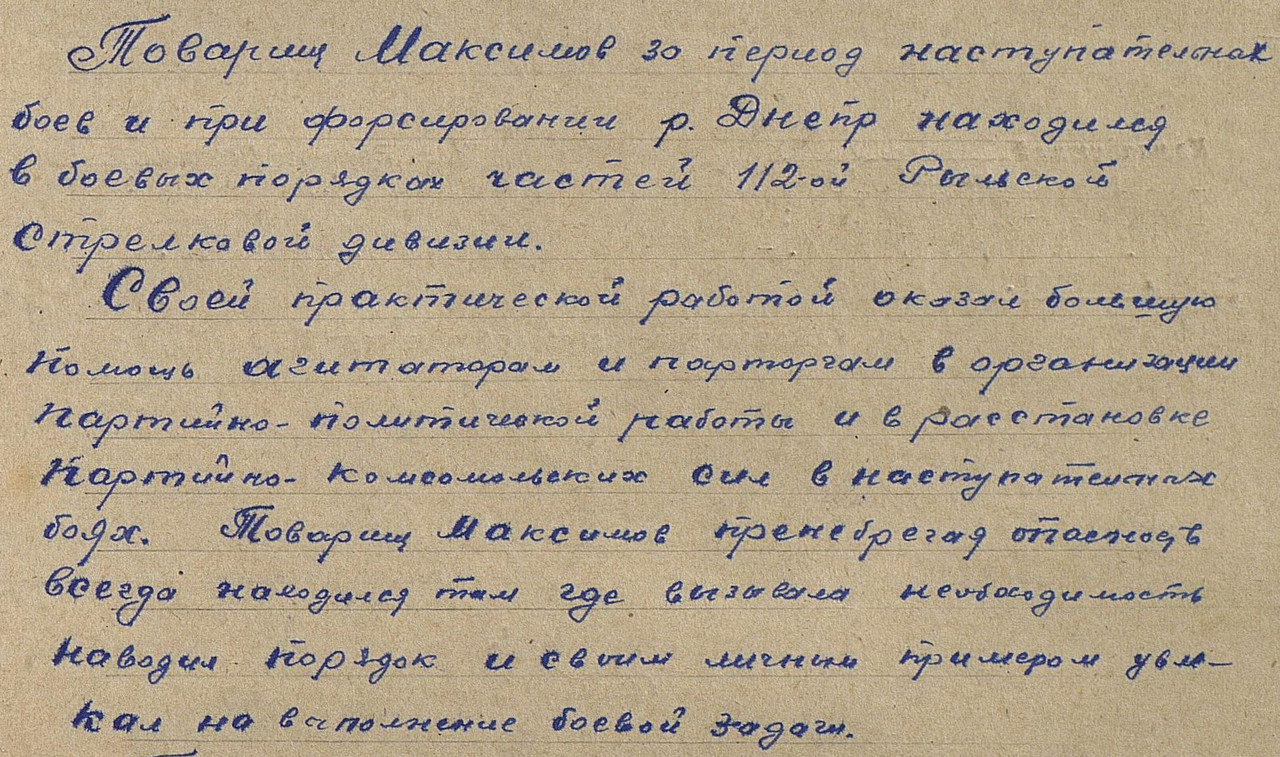 Товарищ Максимов за период наступательных
боев и при форсировании р. Днепр находился
в боевых порядках частей 112-ой Рыльской
стрелковой дивизии.
Своей практической работой оказал большую
помощь агитаторам и парторгам в организации
партийно-политической работы и в расстановке
партийно-комсомольских сил в наступательных
боях. Товарищ Максимов пренебрегая опасность
всегда находился там где вызывала необходимость
наводил порядок и своим личным примером увле-
кал на выполнение боевой задачи.